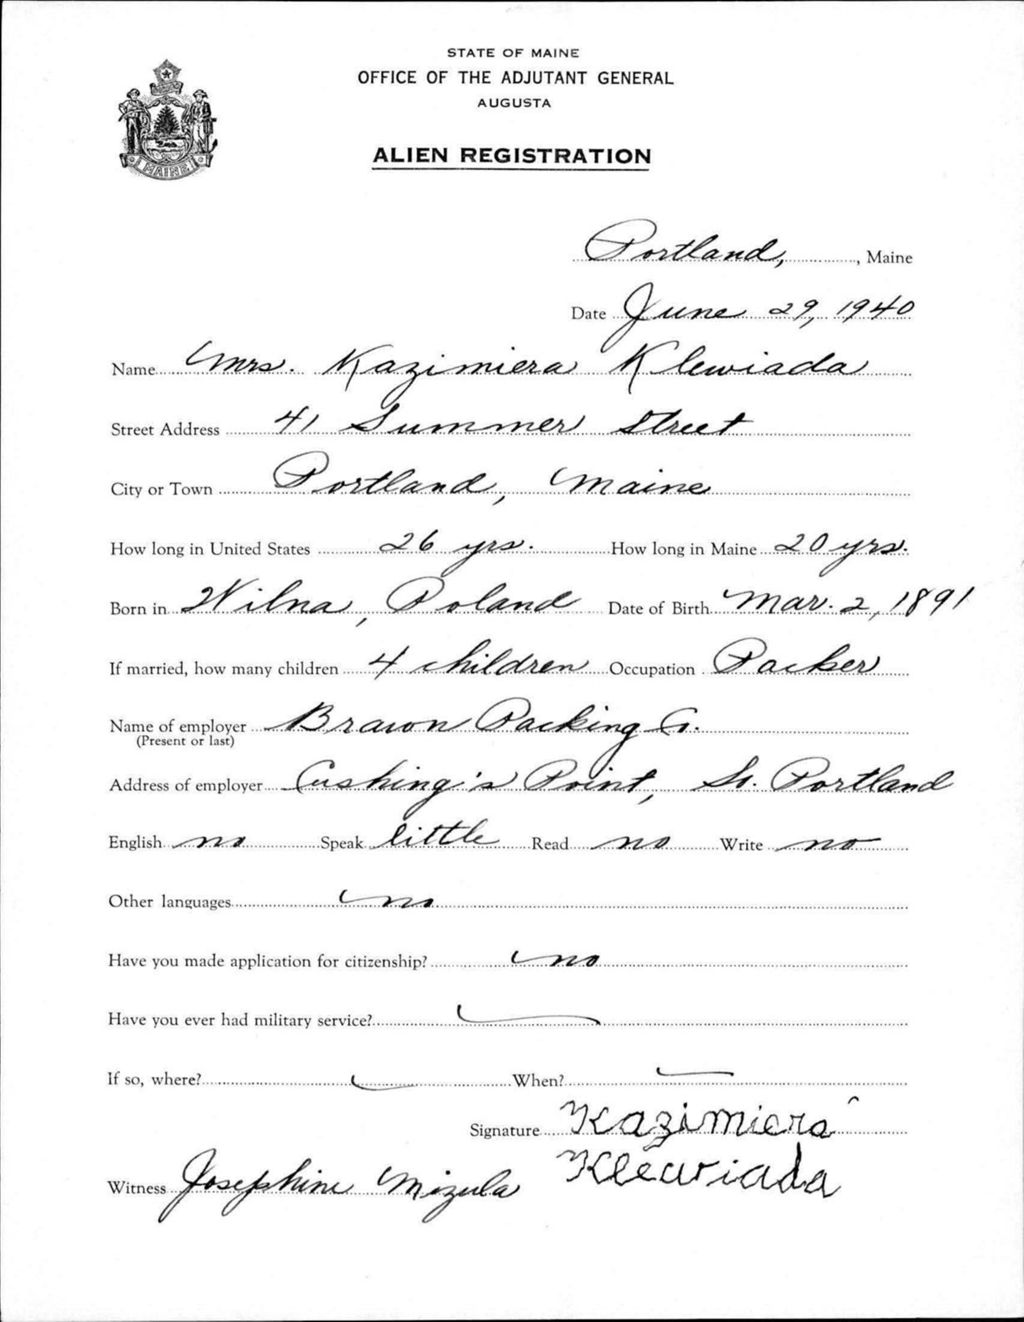 STATE OF MAINE
OFFICE OF THE ADJUTANT GENERAL
AUGUSTA
ALIEN REGISTRATION
MAINE
Portland, , Maine
Date June 29, 1940
Name Mrs. Kazimiera Klewiada
Street Address 41 Summer Street
City or Town Portland, Maine
How long in United States 26 yrs. How long in Maine 20 yrs.
Born in Wilna, Poland Date of Birth Mar. 2, 1891
If married, how many children 4 children Occupation Packer
Name of employer Brawn Packing Co.
(Present or last)
Address of employer Cushing's Point, So. Portland
English no Speak little Read no Write no
Other languages no
Have you made application for citizenship? no
Have you ever had military service? —
If so, where? — When? —
Signature Kazimiera
Klewiada
Witness Josephine Mizula